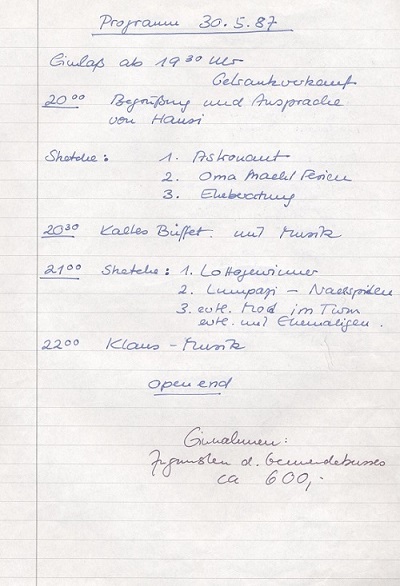 Programm 30.5.87
Einlaß ab 19 30 Uhr
Getränkverkauf
20 00 Begrüßung und Ansprache
von Hansi
Sketche: 1. Astronaut
2. Oma macht Ferien
3. Eheberatung
20 30 Kaltes Büffet mit Musik
21 00 Sketche: 1. Lottogewinner
2. Lumpazi – Nachspielen
3. evtl. Mord im Turm
evtl. mit Ehemaligen.
22 00 Klaus – Musik
open end
Einnahmen:
Zugunsten d. Gemeindebusses
ca 600,-